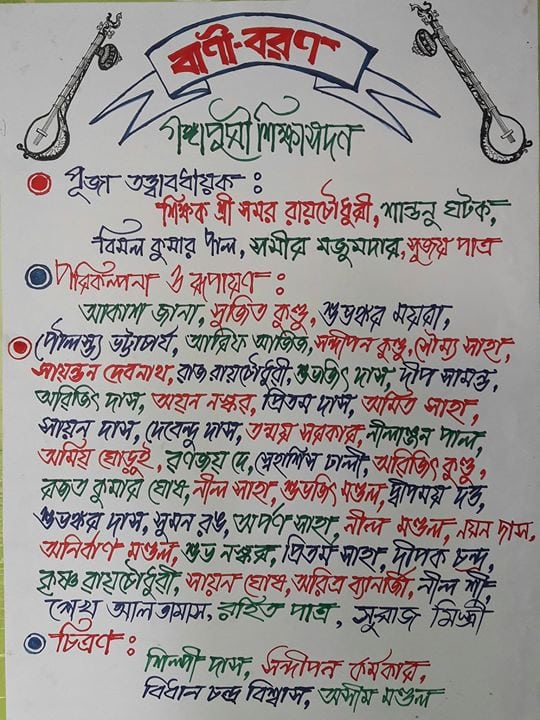 বাণী-বরণ
গঙ্গাপুরী শিক্ষাসদন
পূজা তত্ত্বাবধায়ক :
শিক্ষক শ্রী সমর রায়চৌধুরী, শান্তনু ঘটক,
বিমল কুমার পাল, সমীর মজুমদার, সুজয় পাত্র
পরিকল্পনা ও রূপায়ণ :
আকাশ জানা, সুজিত কুণ্ডু, শুভঙ্কর ময়রা,
পৌলস্ত্য ভট্টাচার্য, আরিফ আজিজ, সন্দীপন কুণ্ডু, সৌম্য সাহা,
সায়ন্তন দেবনাথ, রাজ রায়চৌধুরী, শুভজিৎ দাস, দীপ সামন্ত,
অরিজিৎ দাস, অয়ন নস্কর, প্রিতম দাস, অমিত সাহা,
সায়ন দাস, দেবেন্দু দাস, তন্ময় সরকার, নীলাঞ্জন পাল,
অমিয় ঘোড়ুই, রণজয় দে, স্নেহাশিস ঢালী, অরিজিৎ কুণ্ডু,
রজত কুমার ঘোষ, নীল সাহা, শুভজিৎ মণ্ডল, দ্বীপময় দত্ত,
শুভঙ্কর দাস, সুমন রঙ, অর্পণ সাহা, নীল মণ্ডল, নয়ন দাস,
অনির্বাণ মণ্ডল, শুভ নস্কর, প্রিতম সাহা, দীপক চন্দ্র,
কৃষ্ণ রায়চৌধুরী, সায়ন ঘোষ, অরিত্র ব্যানার্জি, নীল শী,
শেখ আলতামাস, রহিত পাত্র, সুরাজ মিস্ত্রী
চিত্রণ :
শিল্পী দাস, সন্দীপন কর্মকার,
বিধান চন্দ্র বিশ্বাস, অসীম মণ্ডল